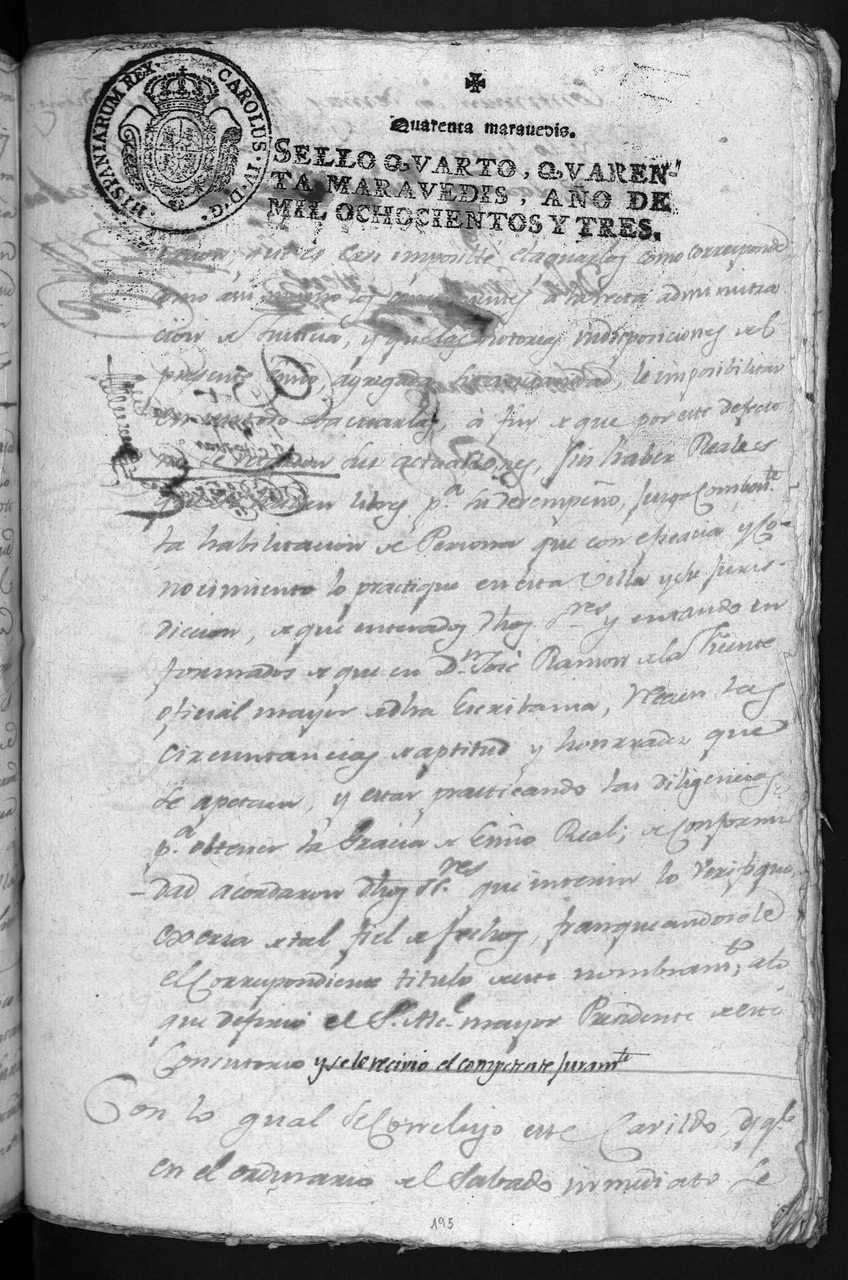 HISPANIARUM REX. CAROLUS·IV·D·G·
Quarenta maravedis.
SELLO QVARTO, QVAREN-
TA MARAVEDIS, AÑO DE
MIL OCHOCIENTOS Y TRES.
como corresponde
como a la recta administra
cion de Justicia, y que las notorias indisposiciones del
presente agregadas le imposibilitan
a fin de que por este defecto
actuaciones, sin haber Reales
libres p.ª su desempeño, juzga comben.te
la habilitacion de Persona que con eficacia y co-
nocimiento lo practique en esta Villa y su Juris-
diccion, de que enterados dhos S.res y estando en
formados de que en D.n José Ramon de la Fuente
oficial mayor de dha Escribania, las
circunstancias de aptitud y honrradez que
se apetecen, y estar practicando las diligencias
p.ª obtener la Gracia de Essño Real; de conformi
dad acordaron dhos S.res que interin lo verifique,
exerza de tal fiel de fechos, franqueandosele
el Correspondiente titulo de este nombram.to, a lo
que defirió el S.r Alc.e mayor Presidente de este
Consistorio y se le recivio el competente juram.to
Con lo qual se Concluyo este Cavildo, y q.e
en el ordinario del Sabado inmediato se
195